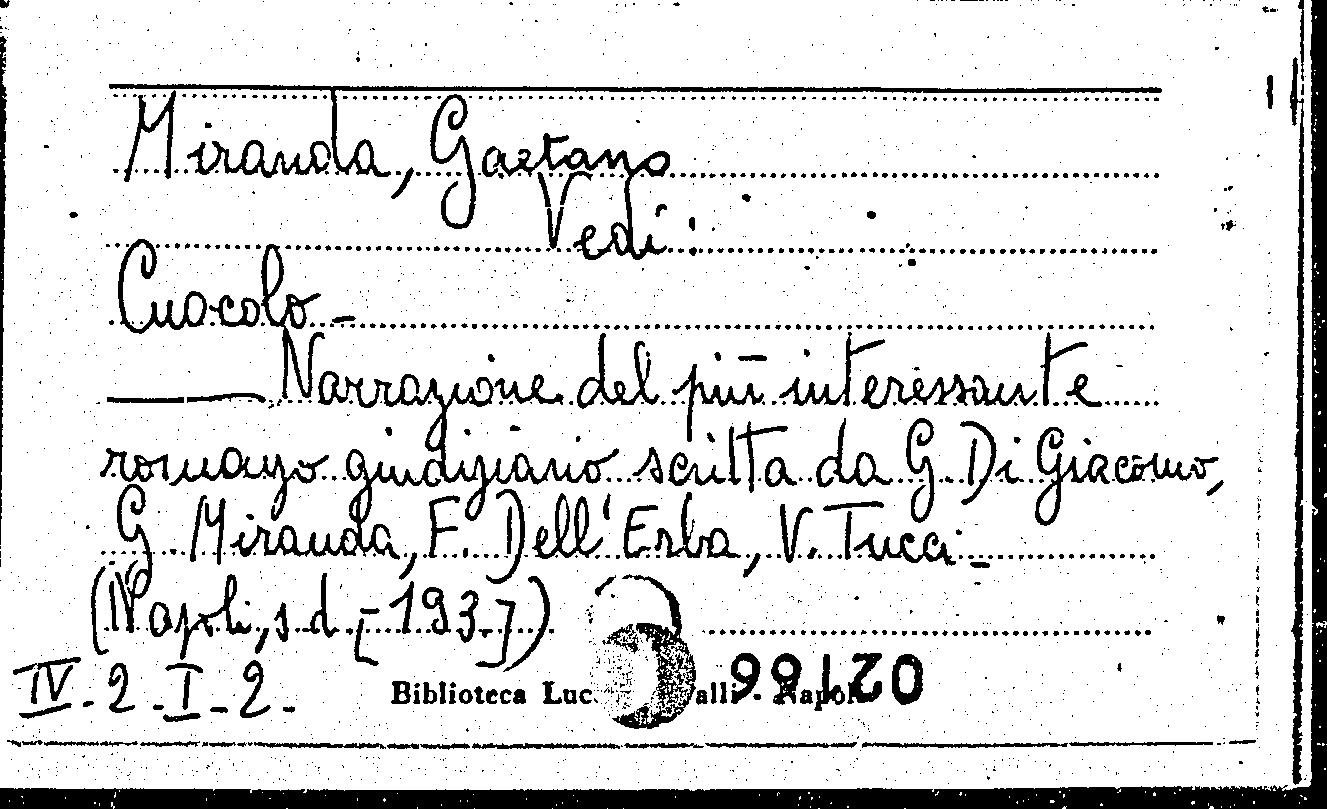 Miranda, Gaetano
Vedi:
Cuocolo -
Narrazione del più interessante
romanzo giudiziario scritta da G. Di Giacomo,
G. Miranda, F. Dell'Erba, V. Tucci -
(Napoli, s.d. [-193.])
IV-2-I-2-
Biblioteca Napoli
02166